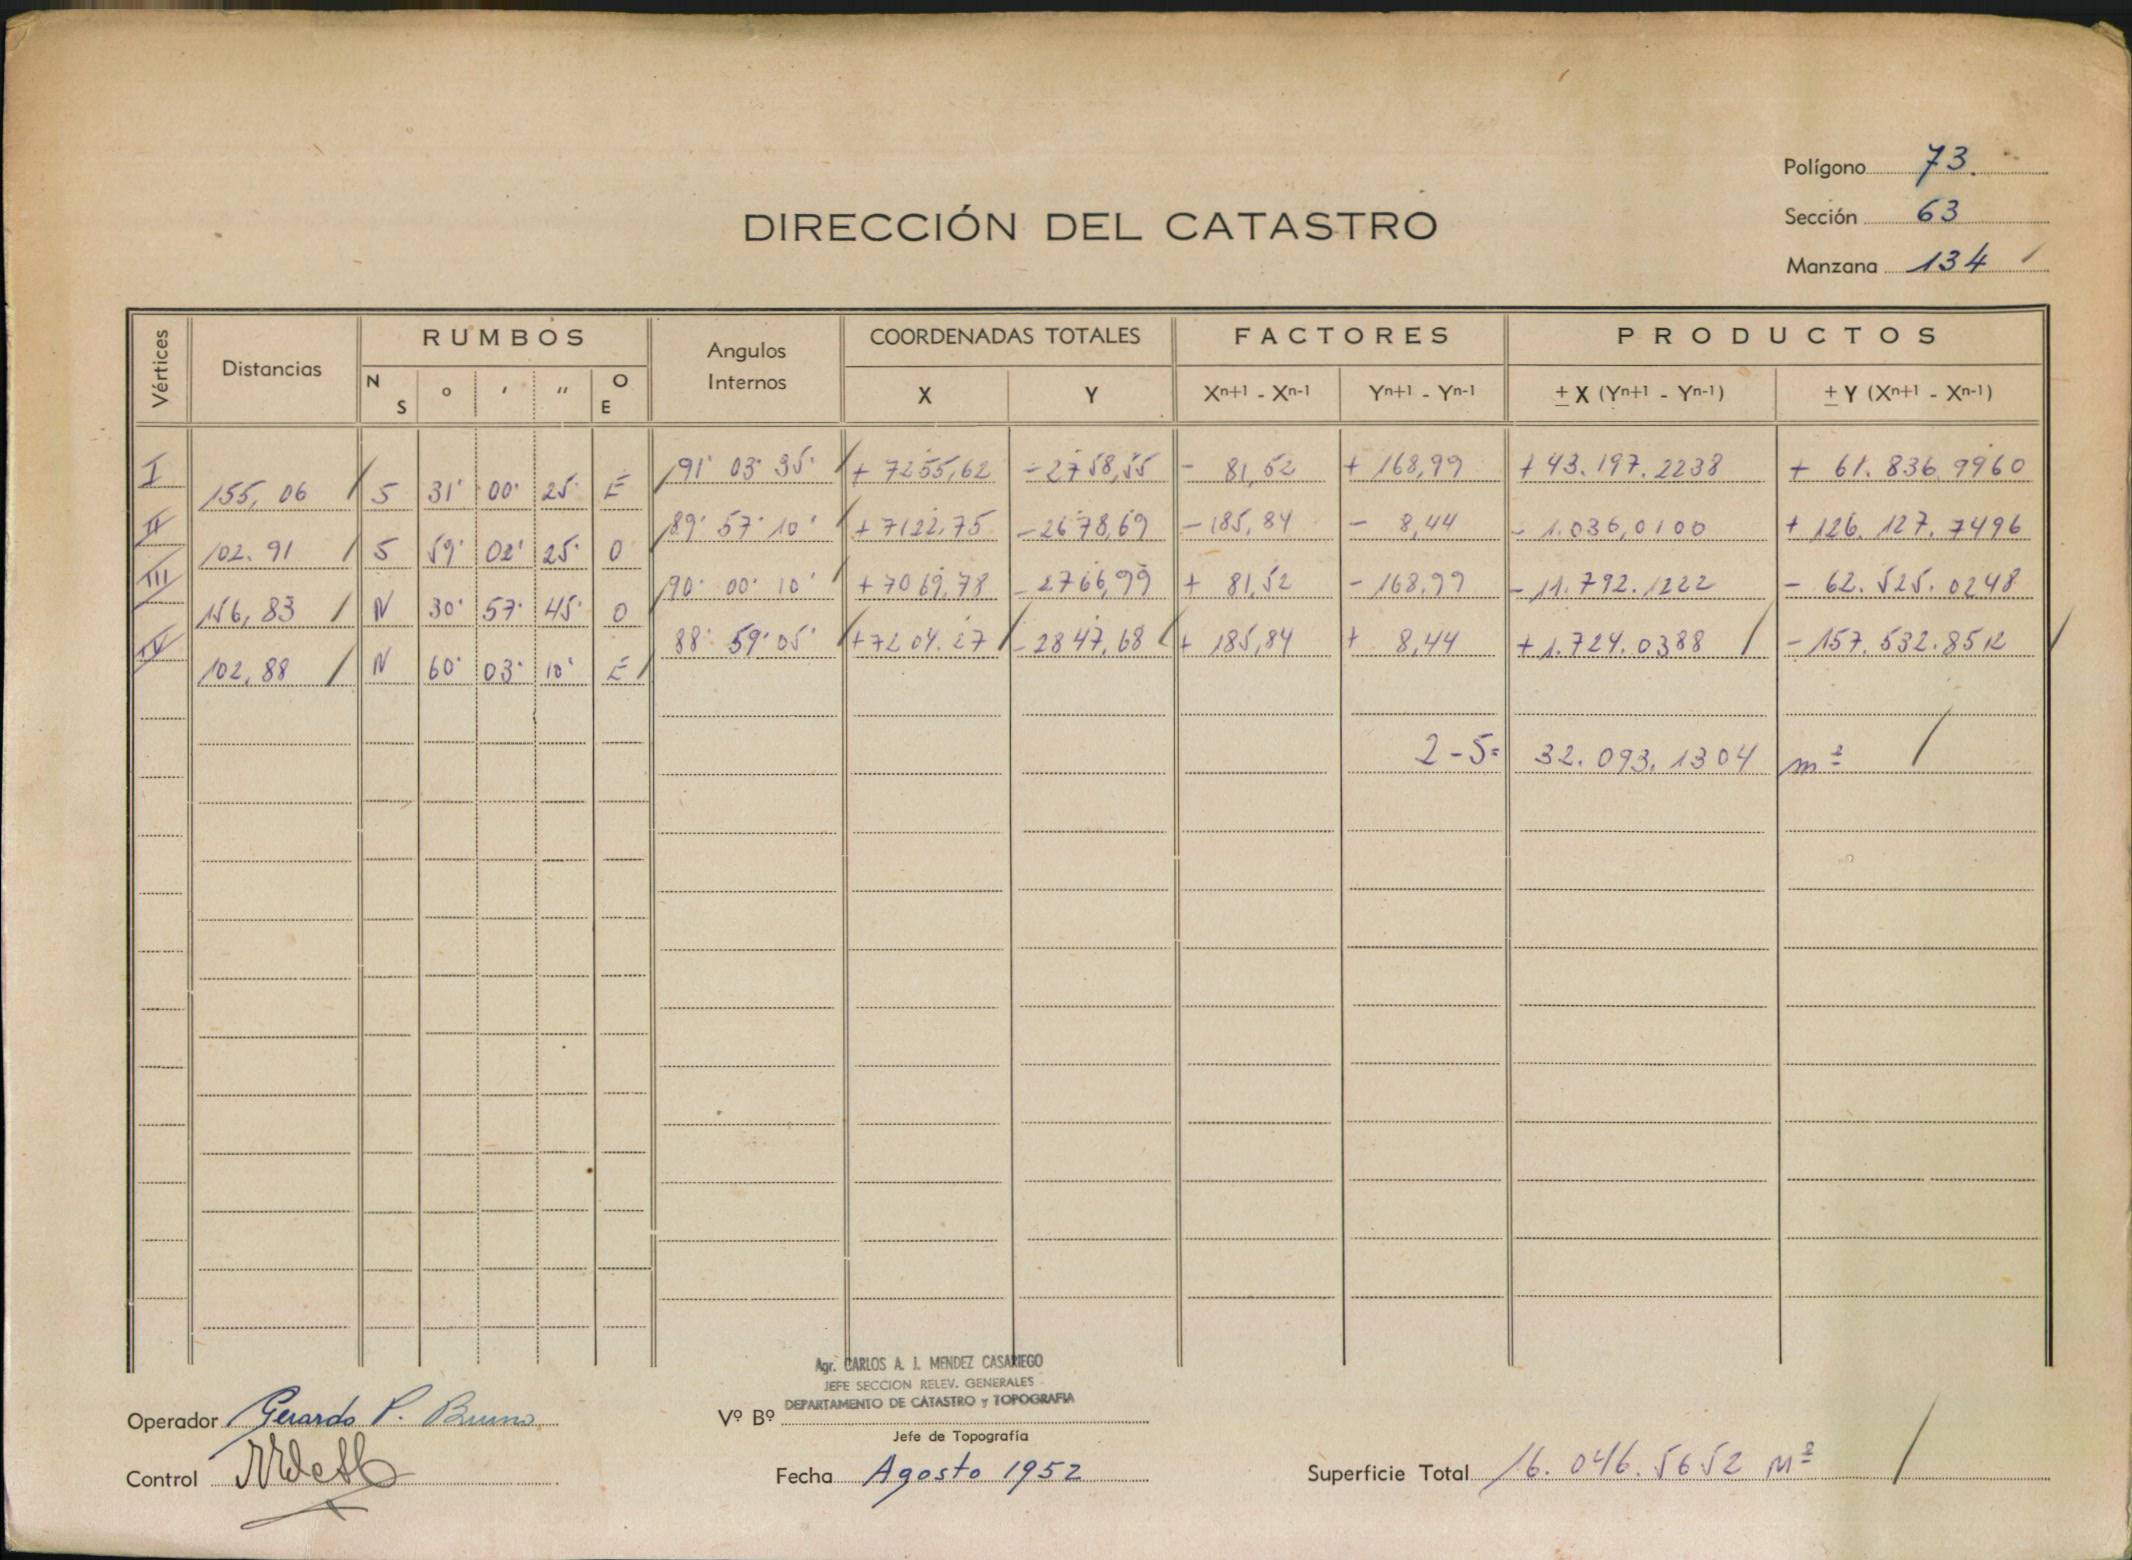 Polígono 73.
DIRECCIÓN DEL CATASTRO
Sección 63
Manzana 134
Vértices Distancias RUMBOS Angulos Internos COORDENADAS TOTALES FACTORES PRODUCTOS
N S ° ' " O E X Y Xn+1 - Xn-1 Yn+1 - Yn-1 ± X (Yn+1 - Yn-1) ± Y (Xn+1 - Xn-1)
I 91° 03' 35" + 7255,62 - 2758,55 - 81,52 + 168,99 + 43.197.2238 + 61.836.9960
155,06 S 31° 00' 25" E
II 89° 57' 10" + 7122,75 - 2678,69 - 185,84 - 8,44 - 1.036,0100 + 126.127.7496
102.91 S 59° 02' 25" O
III 90° 00' 10" + 7069,78 - 2766,99 + 81,52 - 168,99 - 11.792.1222 - 62.525.0248
156,83 N 30° 57' 45" O
IV 88° 59' 05" + 7204.27 - 2847,68 + 185,84 + 8,44 + 1.724.0388 - 157.532.8512
102,88 N 60° 03' 10" E
2-S= 32.093.1304 m²
Agr. CARLOS A. J. MENDEZ CASARIEGO
JEFE SECCION RELEV. GENERALES
DEPARTAMENTO DE CATASTRO y TOPOGRAFIA
Operador Gerardo P. Bruno
Vº Bº
Jefe de Topografía
Control
Fecha Agosto 1952
Superficie Total 16.046.5652 M²